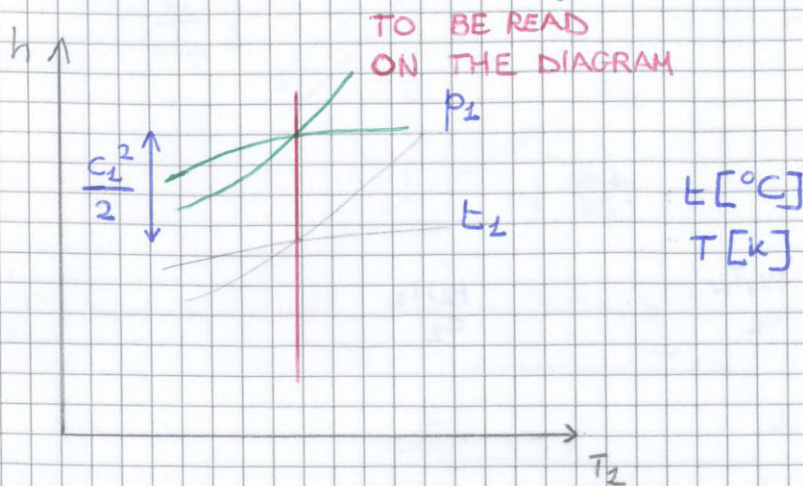 TO BE READ
ON THE DIAGRAM
h
p1
c1²
2
t1
t [°C]
T [K]
T2